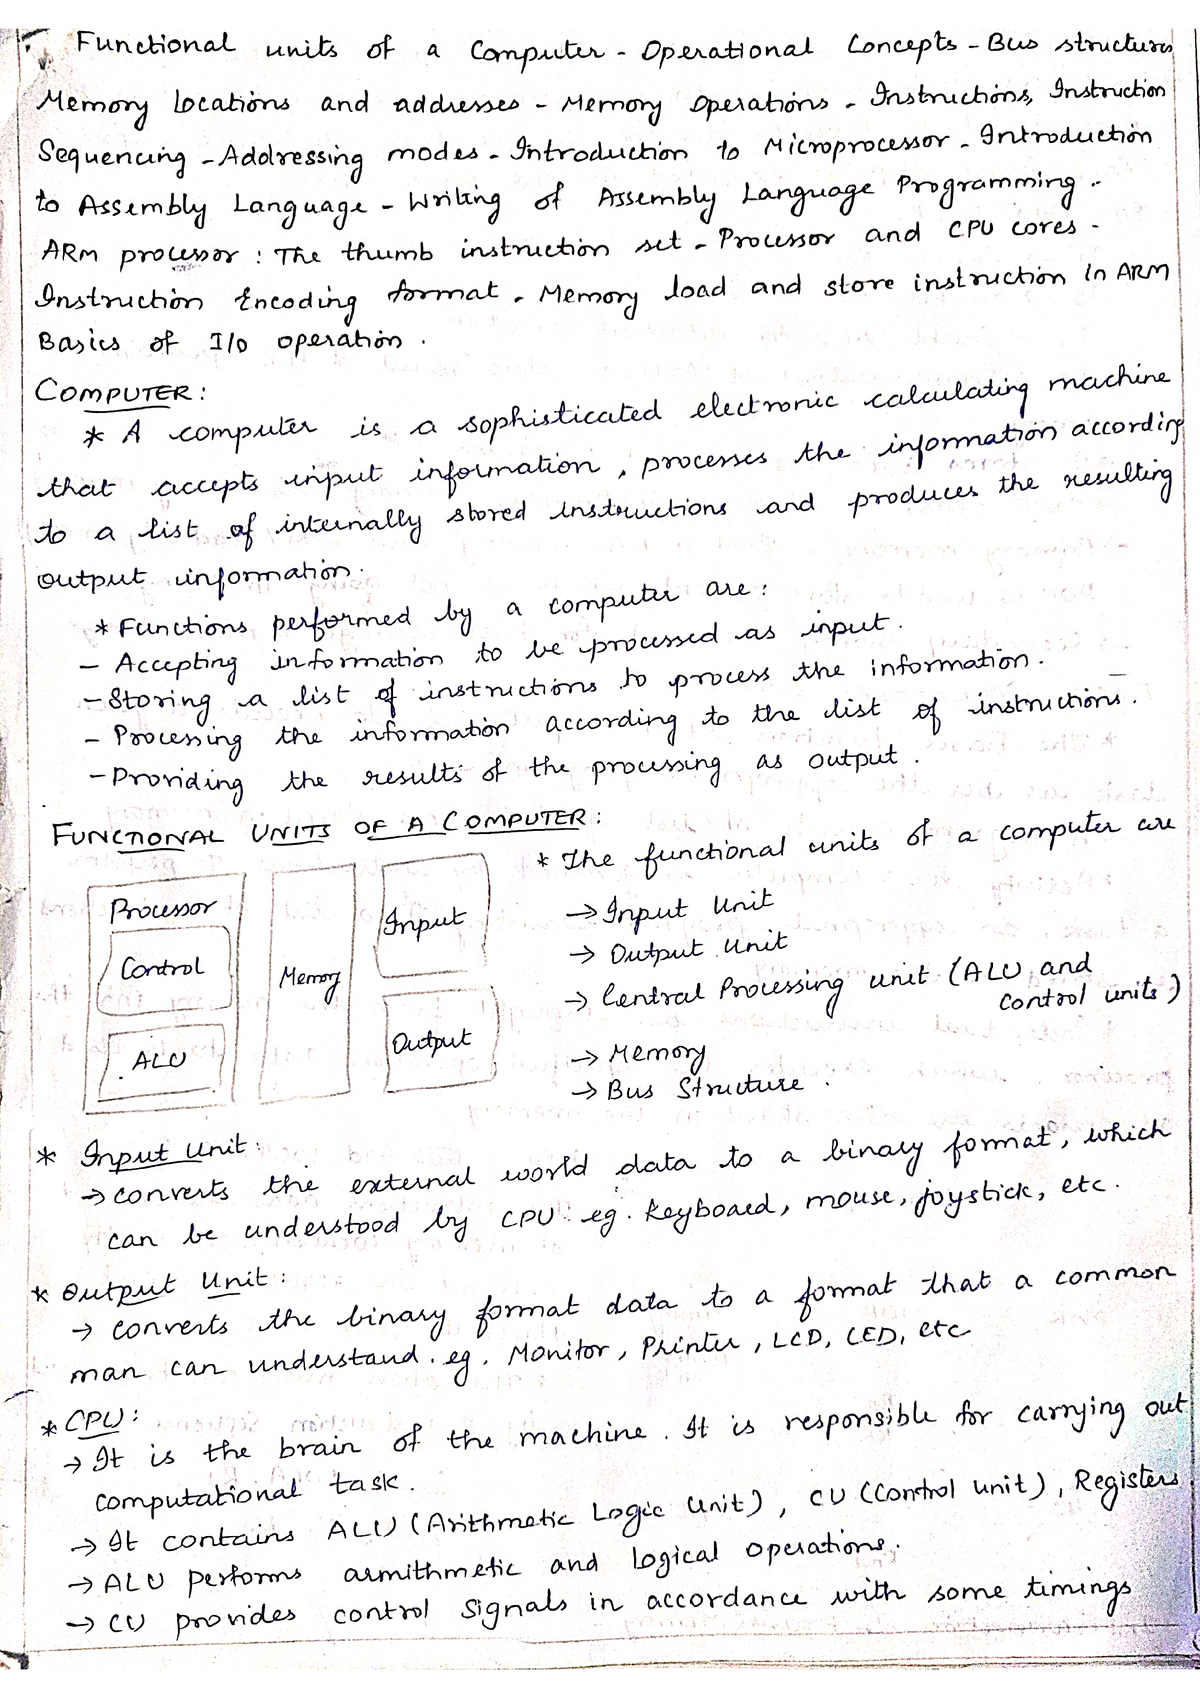 Functional units of a Computer - Operational Concepts - Bus structures
Memory locations and addresses - Memory Operations - Instructions, Instruction
Sequencing - Addressing modes - Introduction to Microprocessor - Introduction
to Assembly Language - Writing of Assembly Language Programming.
ARM processor : The thumb instruction set - Processor and CPU cores -
Instruction Encoding format - Memory load and store instruction in ARM
Basics of I/O operation.
COMPUTER:
* A computer is a sophisticated electronic calculating machine
that accepts input information, processes the information according
to a list of internally stored instructions and produces the resulting
output information.
* Functions performed by a computer are:
- Accepting information to be processed as input.
- Storing a list of instructions to process the information.
- Processing the information according to the list of instructions.
- Providing the results of the processing as output.
FUNCTIONAL UNITS OF A COMPUTER:
Processor
Control
ALU
Memory
Input
Output
* The functional units of a computer are
→ Input Unit
→ Output Unit
→ Central Processing unit (ALU and
control units)
→ Memory
→ Bus Structure.
* Input Unit:
→ converts the external world data to a binary format, which
can be understood by CPU. eg. Keyboard, mouse, joystick, etc.
* Output Unit:
→ converts the binary format data to a format that a common
man can understand. eg. Monitor, Printer, LCD, LED, etc
* CPU:
→ It is the brain of the machine. It is responsible for carrying out
computational task.
→ It contains ALU (Arithmetic Logic Unit), CU (Control unit), Registers.
→ ALU performs asmithmetic and logical operations.
→ CU provides control signals in accordance with some timings